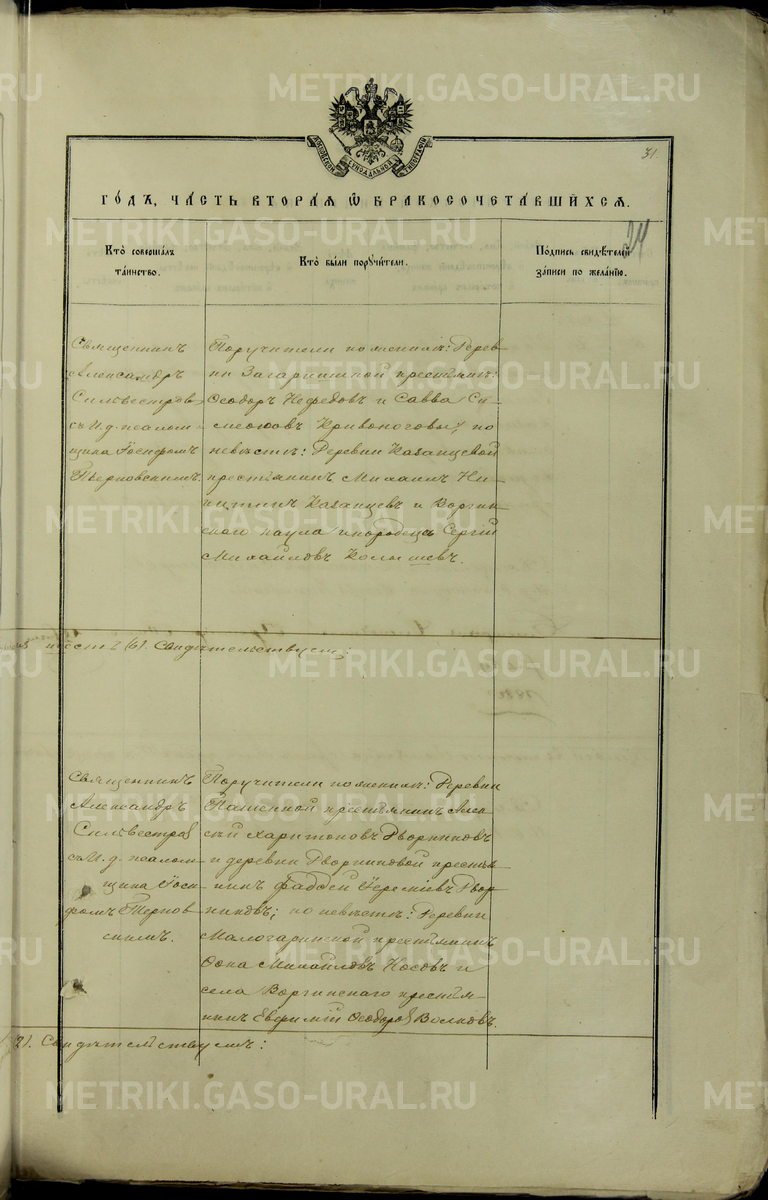 METRIKI.GASO-URAL.RU
МОСКОВСКОЙ СИНОДАЛЬНОЙ ТИПОГРАФІИ
31.
ГО́ДЪ, ЧА́СТЬ ВТОРА́Я Ѡ҆ БРАКОСОЧЕТА́ВШИХСЯ.
24
Кто̀ соверша́лъ
та́инство.
Кто̀ бы́ли поручи́тели.
По́дпись свидѣ́телей
за́писи по жела́нію.
Священникъ
Александръ
Сильвестровъ
съ И. д. псалом-
щика Іосифомъ
Терновскимъ.
Поручители по женихѣ: Дерев
ни Загаришной крестьяне:
Ѳеодоръ Нефедовъ и Савва Си-
меоновъ Кривоноговы; по
невѣстѣ: Деревни Казанцевой
крестьянинъ Михаилъ Ни-
китинъ Казанцевъ и Воргин
скаго паула инородецъ Сергій
Михайловъ Колышевъ.
Свидѣтельствуемъ:
Священникъ
Александръ
Сильвестров
съ И. д. псалом-
щика Іоси-
фомъ Тернов
скимъ.
Поручители по женихѣ: Деревни
крестьянинъ Алек
сѣй Харитоновъ Дворниковъ
и деревни Дворниковой крестья
нинъ Фаддей Іереміевъ Двор
никовъ; по невѣстѣ: Деревни
Малогаринской крестьянинъ
Ѳома Михайловъ Носовъ и
села Воргинскаго крестья-
нинъ Евфимій Ѳеодоров Волковъ.
21. Свидѣтельствуемъ: